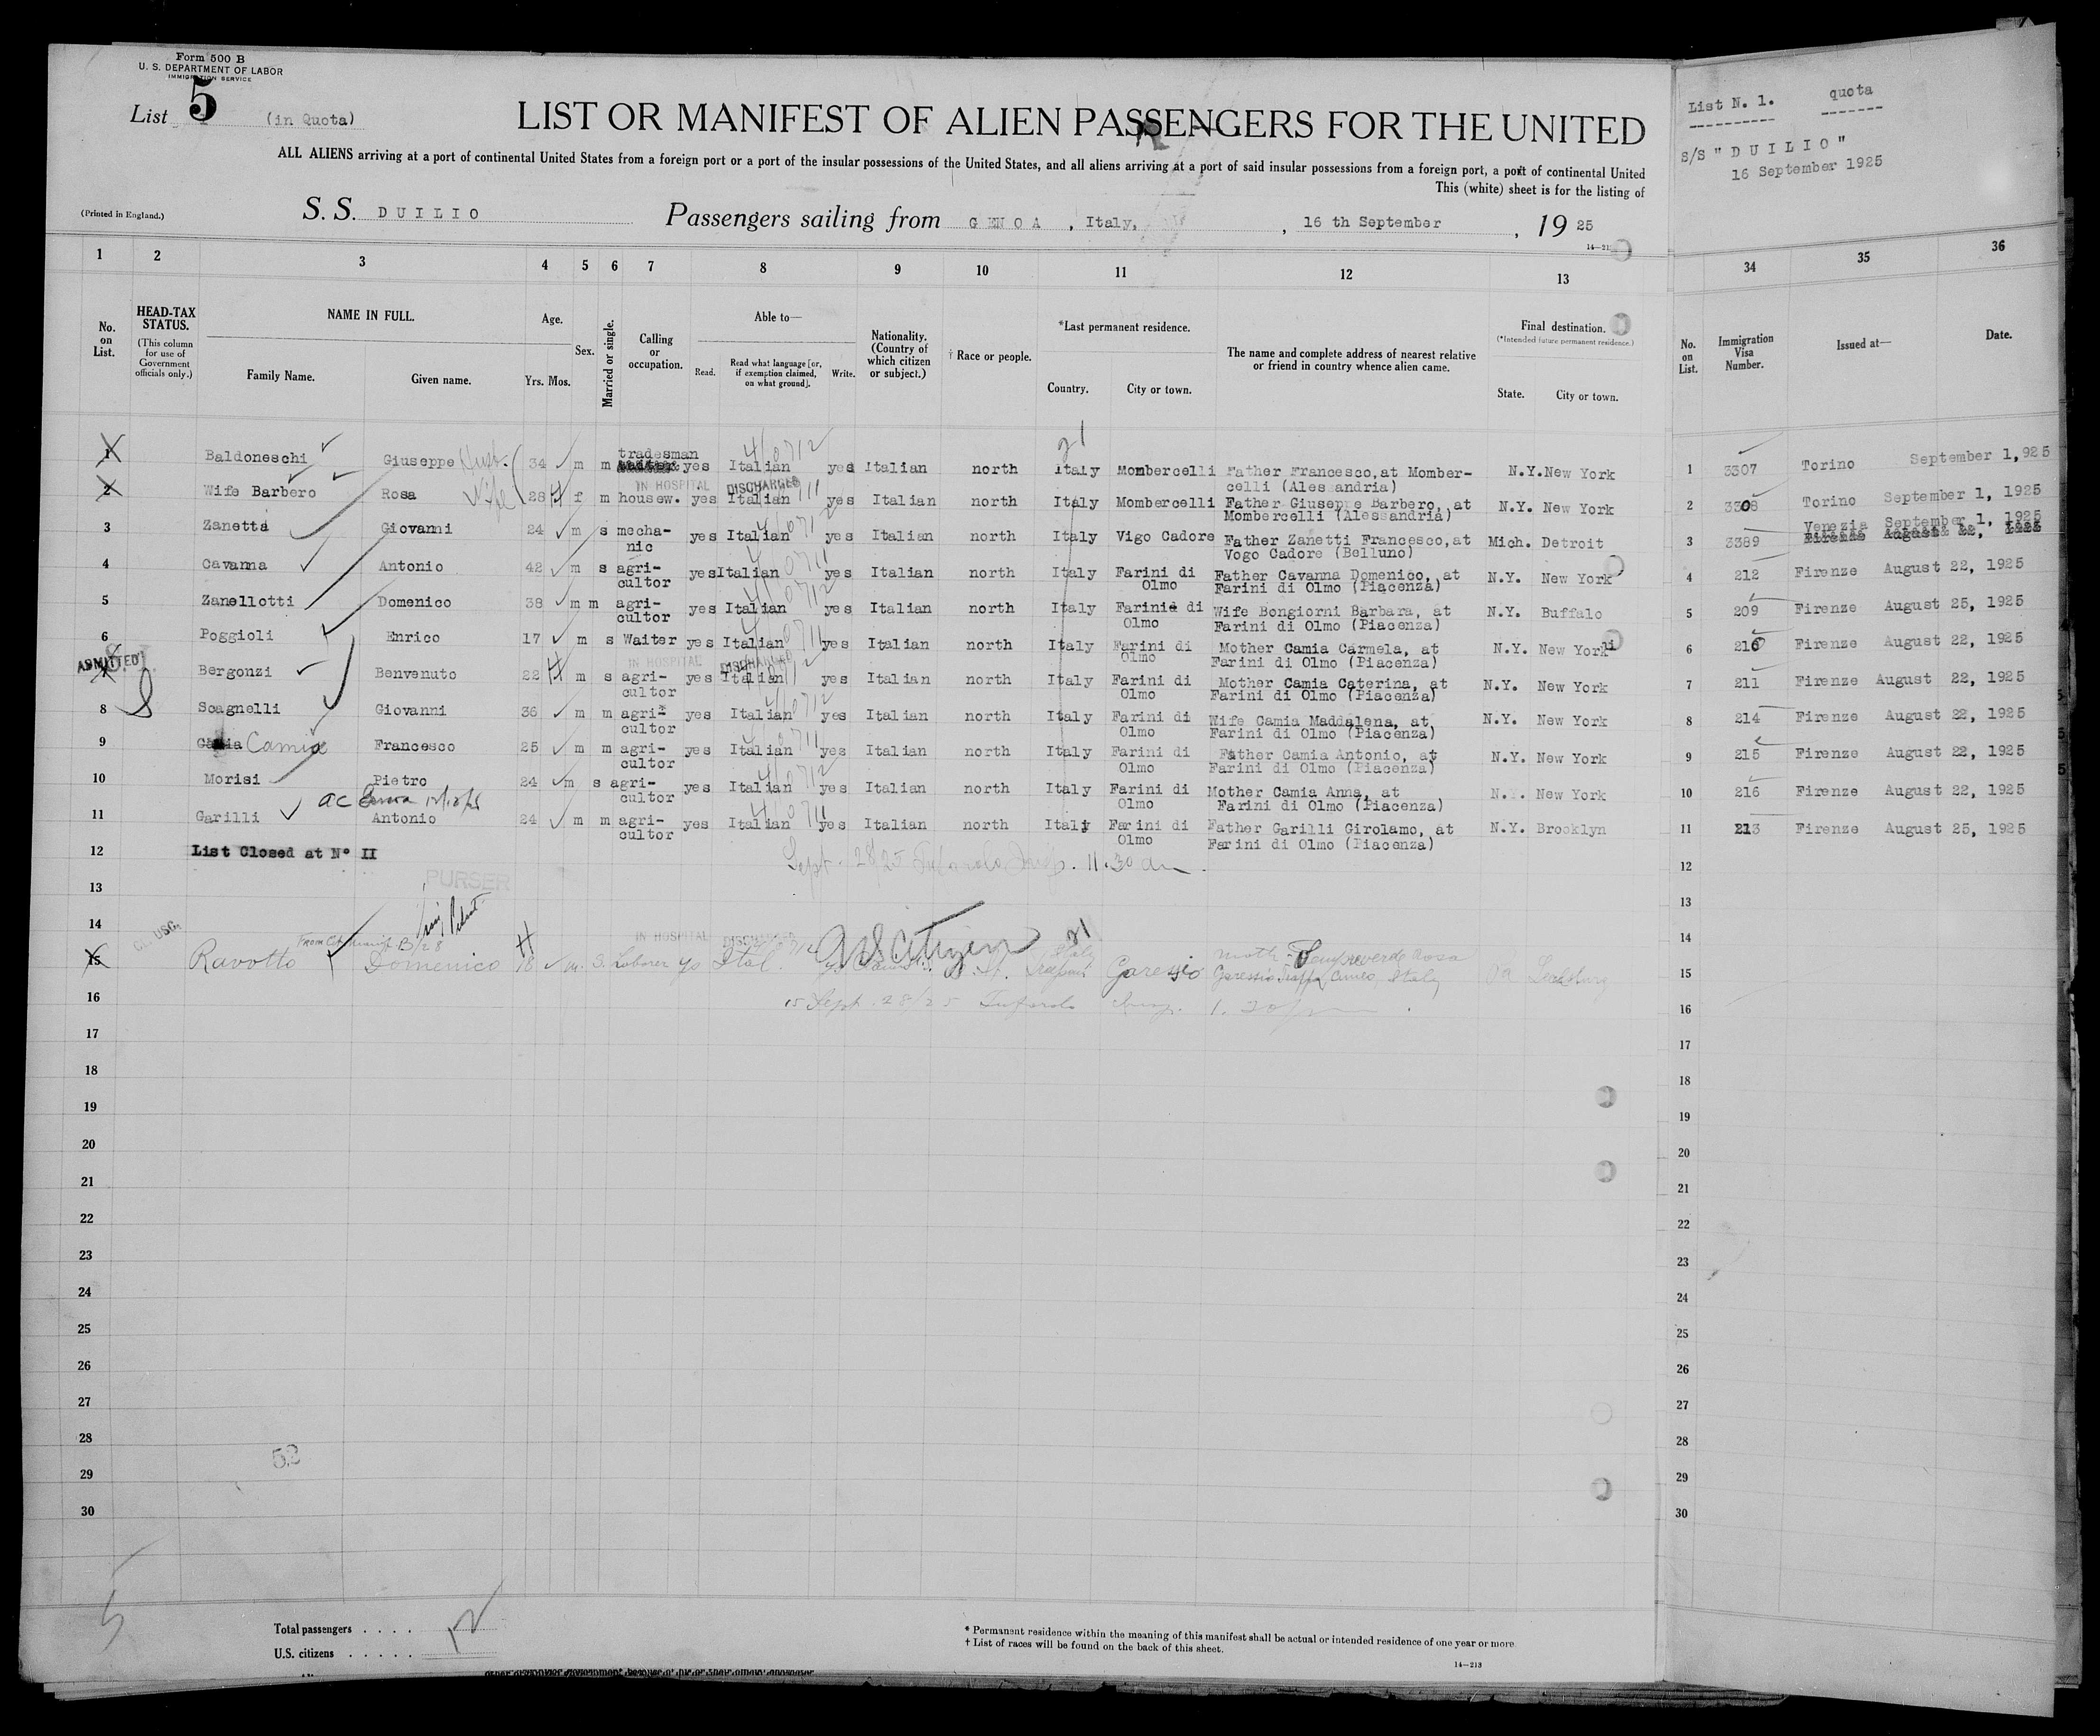 Form 500 B
U. S. DEPARTMENT OF LABOR
IMMIGRATION SERVICE
List 5 (in Quota)
LIST OR MANIFEST OF ALIEN PASSENGERS FOR THE UNITED
ALL ALIENS arriving at a port of continental United States from a foreign port or a port of the insular possessions of the United States, and all aliens arriving at a port of said insular possessions from a foreign port, a port of continental United
This (white) sheet is for the listing of
(Printed in England.)
S. S. DUILIO Passengers sailing from GENOA, Italy, , 16 th September , 19 25
List N. 1. quota
S/S "DUILIO"
16 September 1925
1 2 3 4 5 6 7 8 9 10 11 12 13
34 35 36
No. on List.
HEAD-TAX STATUS.
(This column for use of Government officials only.)
NAME IN FULL.
Family Name. Given name.
Age.
Yrs. Mos.
Sex.
Married or single.
Calling or occupation.
Able to—
Read.
Read what language [or, if exemption claimed, on what ground].
Write.
Nationality. (Country of which citizen or subject.)
† Race or people.
*Last permanent residence.
Country. City or town.
The name and complete address of nearest relative or friend in country whence alien came.
Final destination.
(*Intended future permanent residence.)
State. City or town.
No. on List.
Immigration Visa Number.
Issued at—
Date.
1 Baldoneschi Giuseppe 34 m m tradesman yes Italian yes Italian north Italy Mombercelli Father Francesco, at Momber- celli (Alessandria) N.Y. New York 1 3307 Torino September 1, 925
IN HOSPITAL DISCHARGED
2 Wife Barbero Rosa Wife 28 f m housew. yes Italian yes Italian north Italy Mombercelli Father Giuseppe Barbero, at Mombercelli (Alessandria) N.Y. New York 2 3308 Torino September 1, 1925
3 Zanetta Giovanni 24 m s mecha- nic yes Italian yes Italian north Italy Vigo Cadore Father Zanetti Francesco, at Vogo Cadore (Belluno) Mich. Detroit 3 3389 Venezia September 1, 1925
4 Cavanna Antonio 42 m s agri- cultor yes Italian yes Italian north Italy Farini di Olmo Father Cavanna Domenico, at Farini di Olmo (Piacenza) N.Y. New York 4 212 Firenze August 22, 1925
5 Zanellotti Domenico 38 m m agri- cultor yes Italian yes Italian north Italy Farini di Olmo Wife Bongiorni Barbara, at Farini di Olmo (Piacenza) N.Y. Buffalo 5 209 Firenze August 25, 1925
6 Poggioli Enrico 17 m s Waiter yes Italian yes Italian north Italy Farini di Olmo Mother Camia Carmela, at Farini di Olmo (Piacenza) N.Y. New York 6 210 Firenze August 22, 1925
ADMITTED IN HOSPITAL DISCHARGED
7 Bergonzi Benvenuto 22 m s agri- cultor yes Italian yes Italian north Italy Farini di Olmo Mother Camia Caterina, at Farini di Olmo (Piacenza) N.Y. New York 7 211 Firenze August 22, 1925
8 Scagnelli Giovanni 36 m m agri- cultor yes Italian yes Italian north Italy Farini di Olmo Wife Camia Maddalena, at Farini di Olmo (Piacenza) N.Y. New York 8 214 Firenze August 22, 1925
9 Camia Francesco 25 m m agri- cultor yes Italian yes Italian north Italy Farini di Olmo Father Camia Antonio, at Farini di Olmo (Piacenza) N.Y. New York 9 215 Firenze August 22, 1925
10 Morisi Pietro 24 m s agri- cultor yes Italian yes Italian north Italy Farini di Olmo Mother Camia Anna, at Farini di Olmo (Piacenza) N. New York 10 216 Firenze August 22, 1925
11 Garilli Antonio 24 m m agri- cultor yes Italian yes Italian north Italy Farini di Olmo Father Garilli Girolamo, at Farini di Olmo (Piacenza) N.Y. Brooklyn 11 213 Firenze August 25, 1925
12 List Closed at N° II 12
Sept. 28/25 11.30 am
13 PURSER 13
14 IN HOSPITAL DISCHARGED US citizen 14
15 Ravotto Domenico 18 m. S. Laborer ys Ital. Garessio Rosa Italy Pa 15
15 Sept. 28/25 1.30
16 16
17 17
18 18
19 19
20 20
21 21
22 22
23 23
24 24
25 25
26 26
27 27
28 28
52
29 29
30 30
Total passengers . . . . 12
U.S. citizens . . . . .
* Permanent residence within the meaning of this manifest shall be actual or intended residence of one year or more.
† List of races will be found on the back of this sheet.
14—213